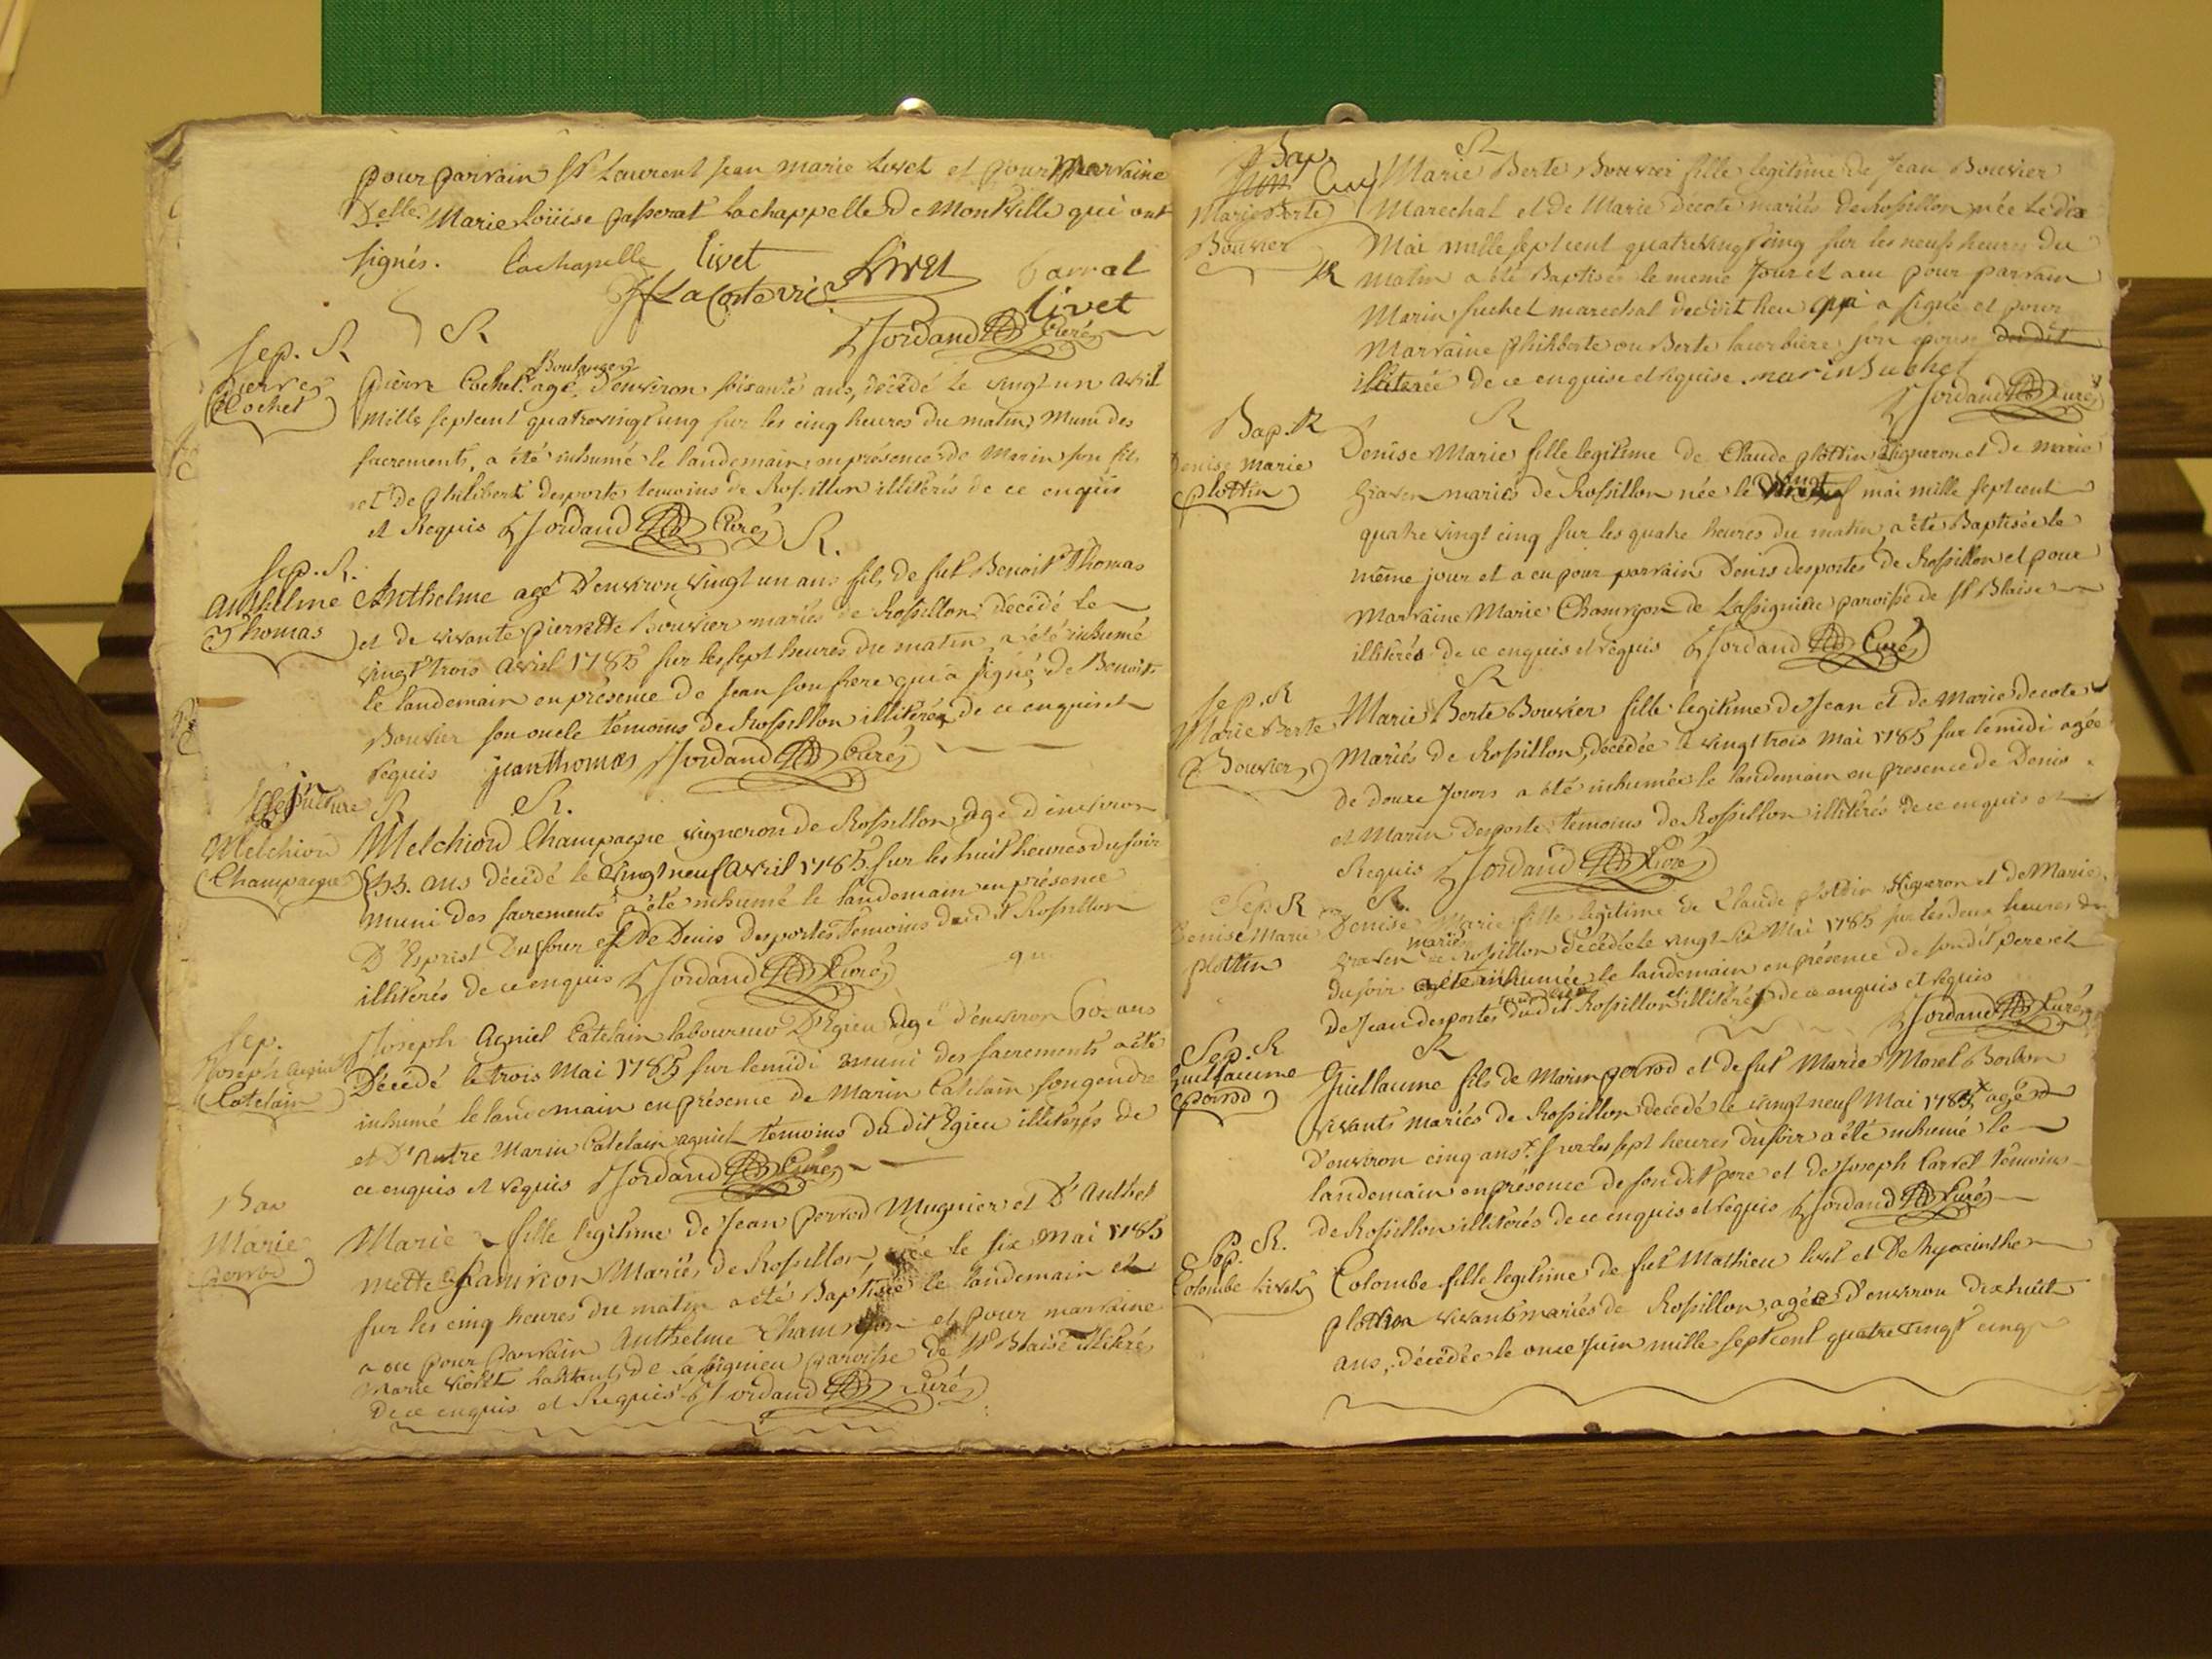 pour parrain Sr Laurent jean marie Livet et pour Marraine
Delle Marie Loüise passerat Lachappelle de Montville qui ont
signés. Lachapelle livet Livet
livet
Jordand Curé
Sep. R R
pierre Cochet
Boulanger
pierre Cochet agé d'environ soixante ans, décédé le vingt un avril
mille septcent quatrevingt cinq sur les cinq heures du matin, Muni des
sacrements, a été inhumé le landemain en présence de Marin son fils
et de philibert desporte temoins de Rossillon illitérés de ce enquis
et Requis Jordand Curé R.
Sep. R.
Anthelme
Thomas
Anthelme agé D'environ vingt un ans fils de fut Benoit Thomas
et de vivante pierrette Bouvier mariés de Rossillon décédé le
vingt trois avril 1785 sur les sept heures du matin, a été inhumé
le landemain en présence de Jean son frere qui a signé, de Benoit
Bouvier son oncle témoins de Rossillon illitérés de ce enquis et
requis jean thomas Jordand Curé
Sépulture R R.
Melchiord
Champagne
Melchiord Champagne vigneron de Rossillon, agé d'environ
55. ans décédé le vingt neuf avril 1785. sur les huit heures du soir
muni des sacrements a été inhumé le landemain en présence
D'Esprist Dufour et De Denis desportes Témoins dudit Rossillon
illitérés de ce enquis Jordand Curé
Sep.
Joseph agniel
Catelain
Joseph Agniel Catelain laboureur D'Egieu agé d'environ 60. ans
Décédé le trois Mai 1785 sur le midi muni des sacrements a été
inhumé le landemain en présence de Marin Catelain son gendre
et D'autre Marin Catelain agniel témoins du dit Egieu illitérés de
ce enquis et requis Jordand Curé
Bap
Marie
perrod
Marie fille légitime de Jean perrod Mugnier et D'Anthel
mette Mariés de Rossillon, née le six Mai 1785
sur les cinq heures du matin a été Baptisée le landemain et
a eu pour parrain Anthelme Chamvion et pour marraine
Marie violet habitants de Lassignieu paroisse de St Blaise illitérés
de ce enquis et Requis Jordand Curé
Bap
Marie Berte
Bouvier
R
Marie Berte Bouvier fille legitime de Jean Bouvier
Marechal et de Marie Decote mariés de Rossillon née le dix
Mai mille septcent quatrevingt cinq sur les neufs heures du
matin a été Baptisée le meme Jour et a eu pour parrain
Marin suchet marechal dudit lieu qui a signé et pour
Marraine philiberte ou Berte son épouse
illiterée de ce enquise et requise. marin Suchet
Jordand Curé
Bap. R R
Denise marie
plottin
Denise Marie fille legitime de Claude plottin vigneron et de marie
Graven mariés de Rossillon née le mai mille septcent
quatre vingt cinq sur les quatre heures du matin, a été Baptisée le
même jour et a eu pour parrain Denis desportes de Rossillon et pour
marraine Marie Chamvion de Lassignieu paroisse de St Blaise
illitérés de ce enquis et réquis Jordand Curé
Sep. R R
Marie Berte
Bouvier
Marie Berte Bouvier fille legitime de Jean et de Marie decote
Mariés de Rossillon, décédée le vingt trois Mai 1785 sur le midi agée
de douze Jours a été inhumée le landemain en présence de Denis
et Marin Desporte témoins de Rossillon illitérés de ce enquis et
Requis Jordand Curé
Sep. R R.
Denise Marie
plottin
Denise Marie fille legitime de Claude plottin vigneron et de Marie
Graven mariés de Rossillon décédée le vingt six Mai 1785 sur les deux heures du
du soir a été inhumée le landemain en présence de son dit pere et
de Jean desportes dudit Rossillon illitérés de ce enquis et requis
Jordand Curé
Sep. R R
Guillaume
perrod
Guillaume fils de Marin perrod et de fut Marie Morel Bonbon
vivants mariés de Rossillon decedé le vingt neuf Mai 1785 agé
d'environ cinq ans sur les sept heures du soir a été inhumé le
landemain en présence de son dit pere et de Joseph Carrel témoins
de Rossillon illiterés de ce enquis et requis Jordand Curé
Sep. R.
Colombe Livet
Colombe fille legitime de fut Mathieu livet et De hyacinthe
plottin vivants mariés de Rossillon, agée d'environ dix huit
ans, décédée le onze Juin mille septcent quatre vingt cinq